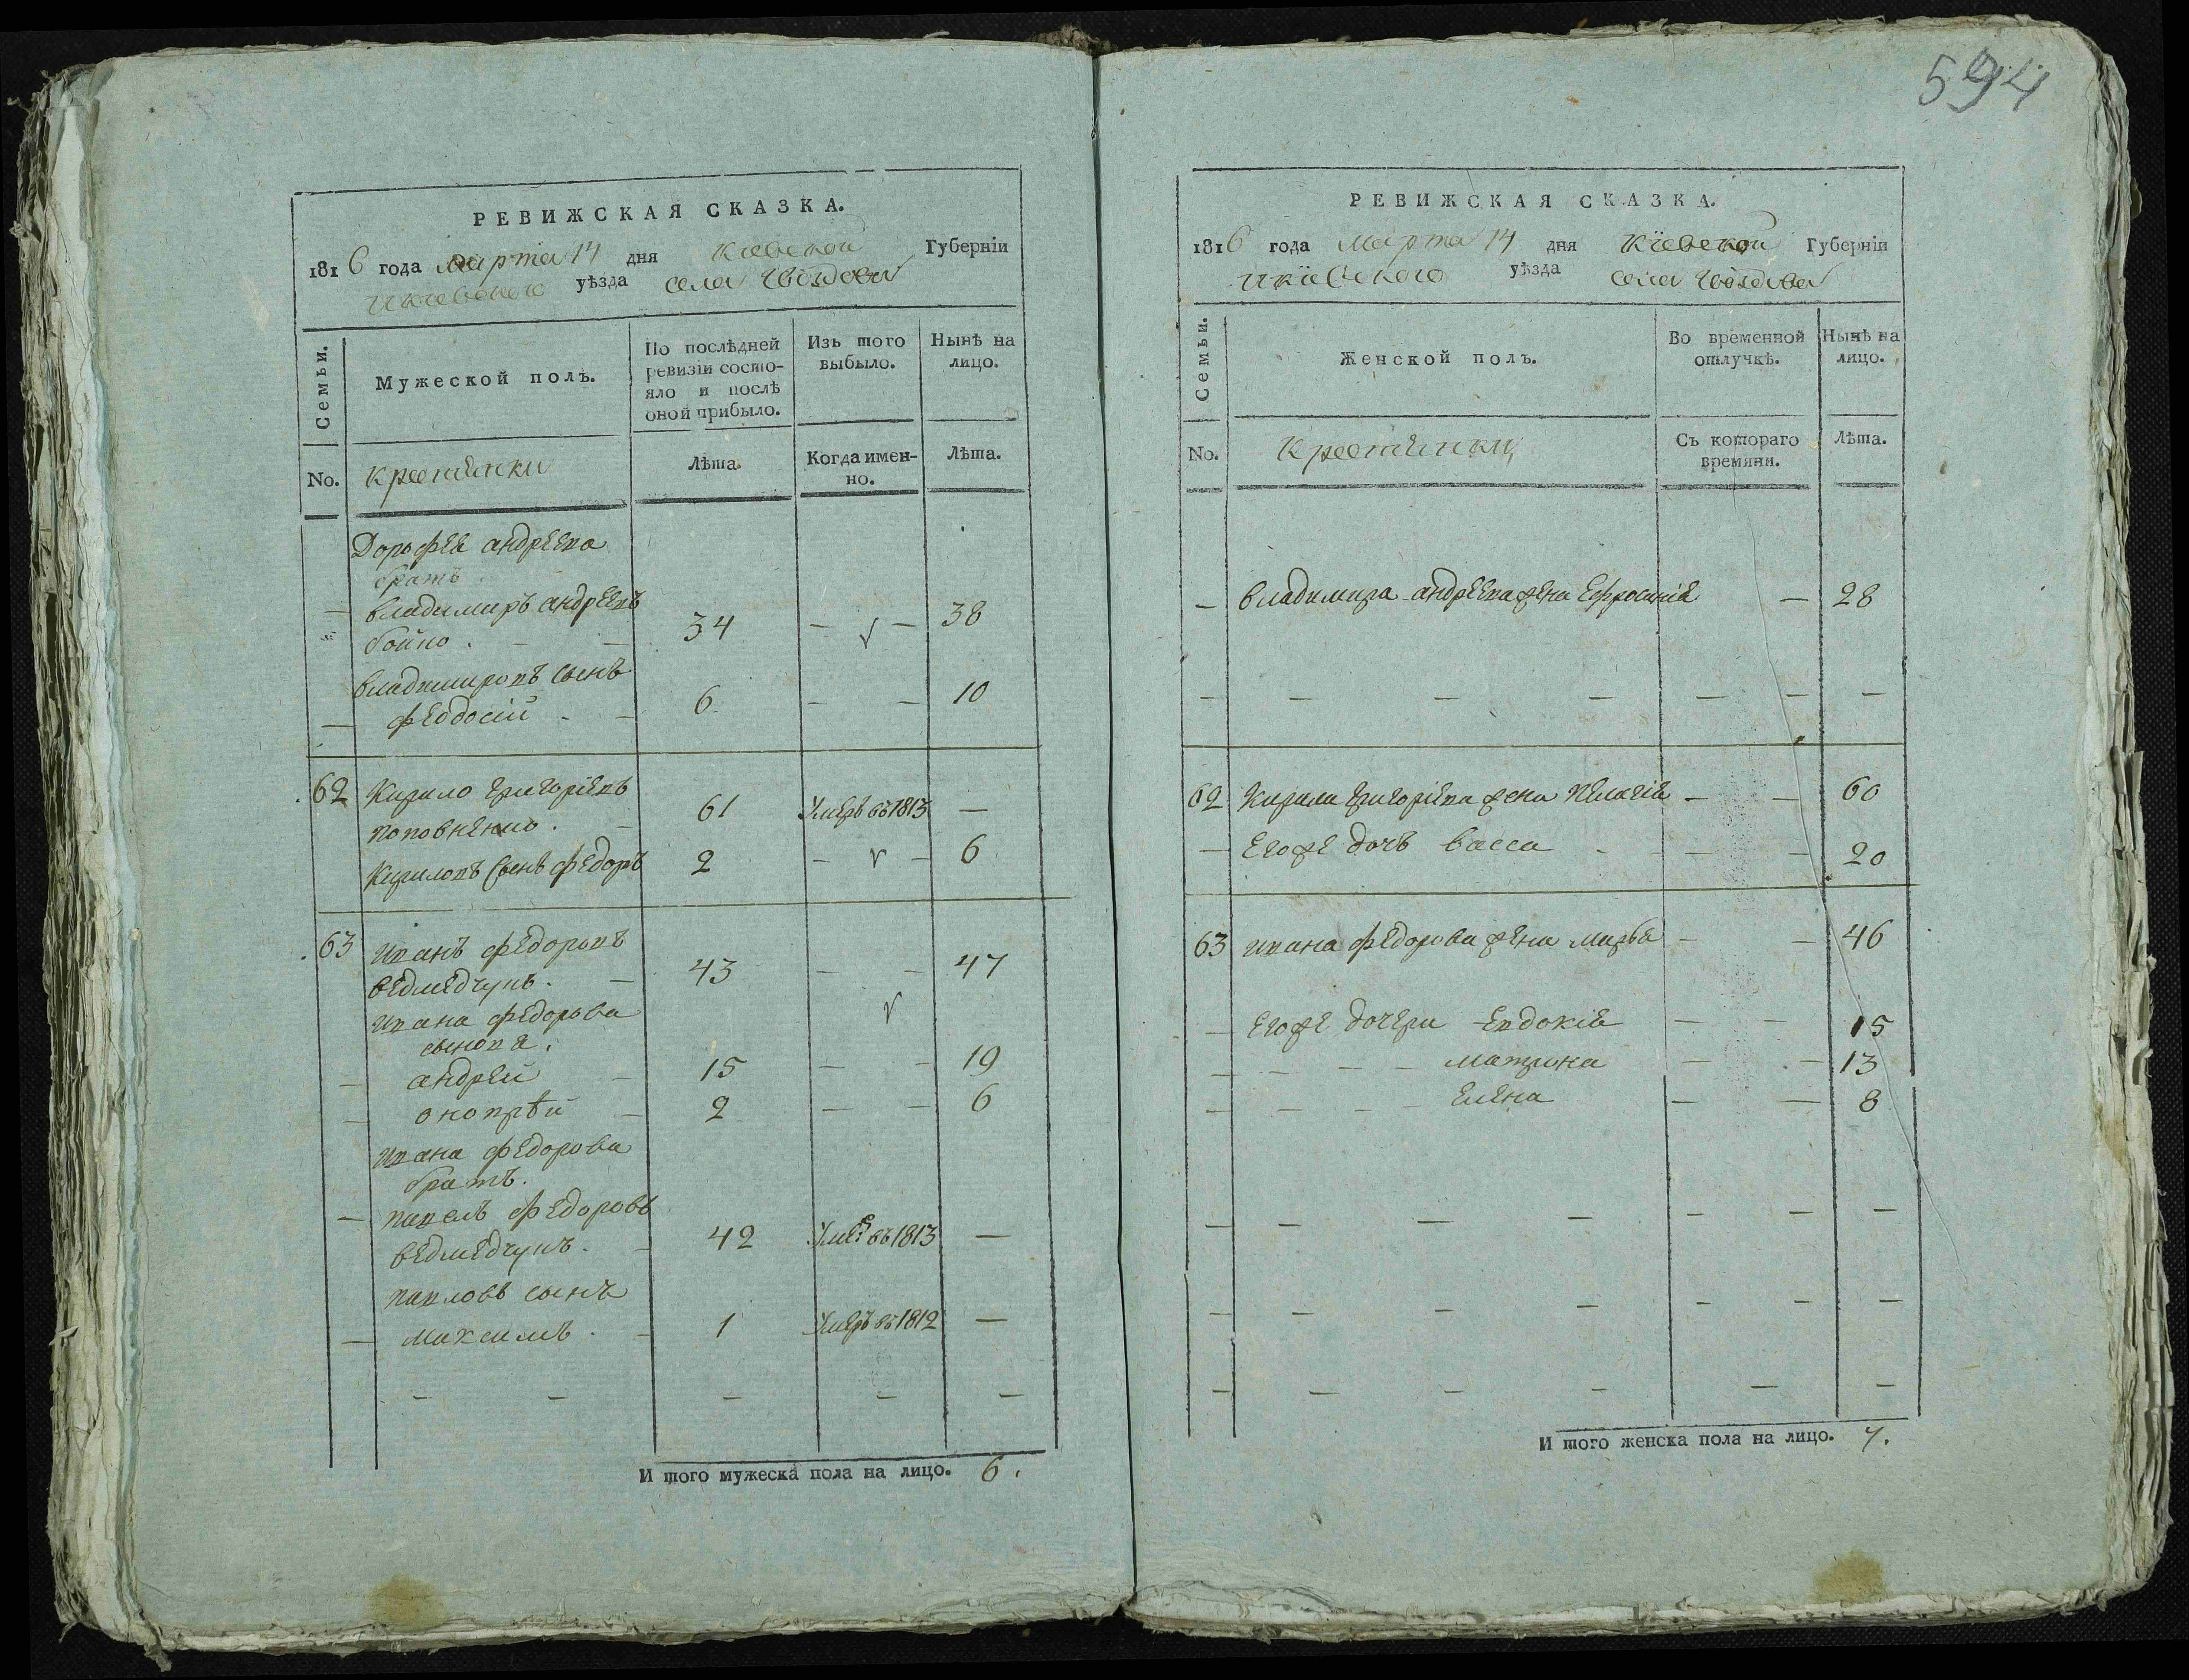 594
РЕВИЖСКАЯ СКАЗКА.
1816 года марта 14 дня Кіевской Губерніи
Икіевского уѣзда села Гвоздова
Семьи.
Мужеской полъ.
По послѣдней ревизіи состо-
яло и послѣ
оной прибыло.
Изъ того
выбыло.
Нынѣ на
лицо.
No.
Крестянки
Лѣта.
Когда имен-
но.
Лѣта.
Дорофея андреева
братъ
— владимиръ андреевъ
бойко . — — 34 — √ — 38
владимировъ сынъ
— феодосій — — 6 — — 10
62 Кирило григоріевъ
поповненко . — 61 Умеръ въ 1813 —
Кириловъ сынъ федоръ 2 — √ — 6
63 иванъ федоровъ
ведмедчукъ . — 43 — — 47
ивана федорова √
сыновя .
— андрей — 15 — — 19
— онопрѣй — 2 — — 6
ивана федорова
братъ .
— павелъ федоровъ
ведмедчукъ . — 42 Умеръ въ 1813 —
павловъ сынъ
— максимъ . — 1 Умеръ въ 1812 —
— — — — —
И того мужеска пола на лицо. 6 .
РЕВИЖСКАЯ СКАЗКА.
1816 года Марта 14 дня Кіевской Губерніи
Икіевского уѣзда села Гвоздова
Семьи.
Женской полъ.
Во временной
отлучкѣ.
Нынѣ на
лицо.
No.
Крестянки
Съ котораго
времяни.
Лѣта.
— владимира андреева жена Ефросинія — 28
— — — — — — —
62 Кирила григоріева жена пелагія — — 60
— Егоже дочь васса — — — 20
63 ивана федорова жена марья — — 46
— Егоже дочери Евдокія — — 15
— — — — матрона — — 13
— — — — Елена — — 8
— — — — — — —
— — — — — — —
— — — — — —
И того женска пола на лицо. 7.